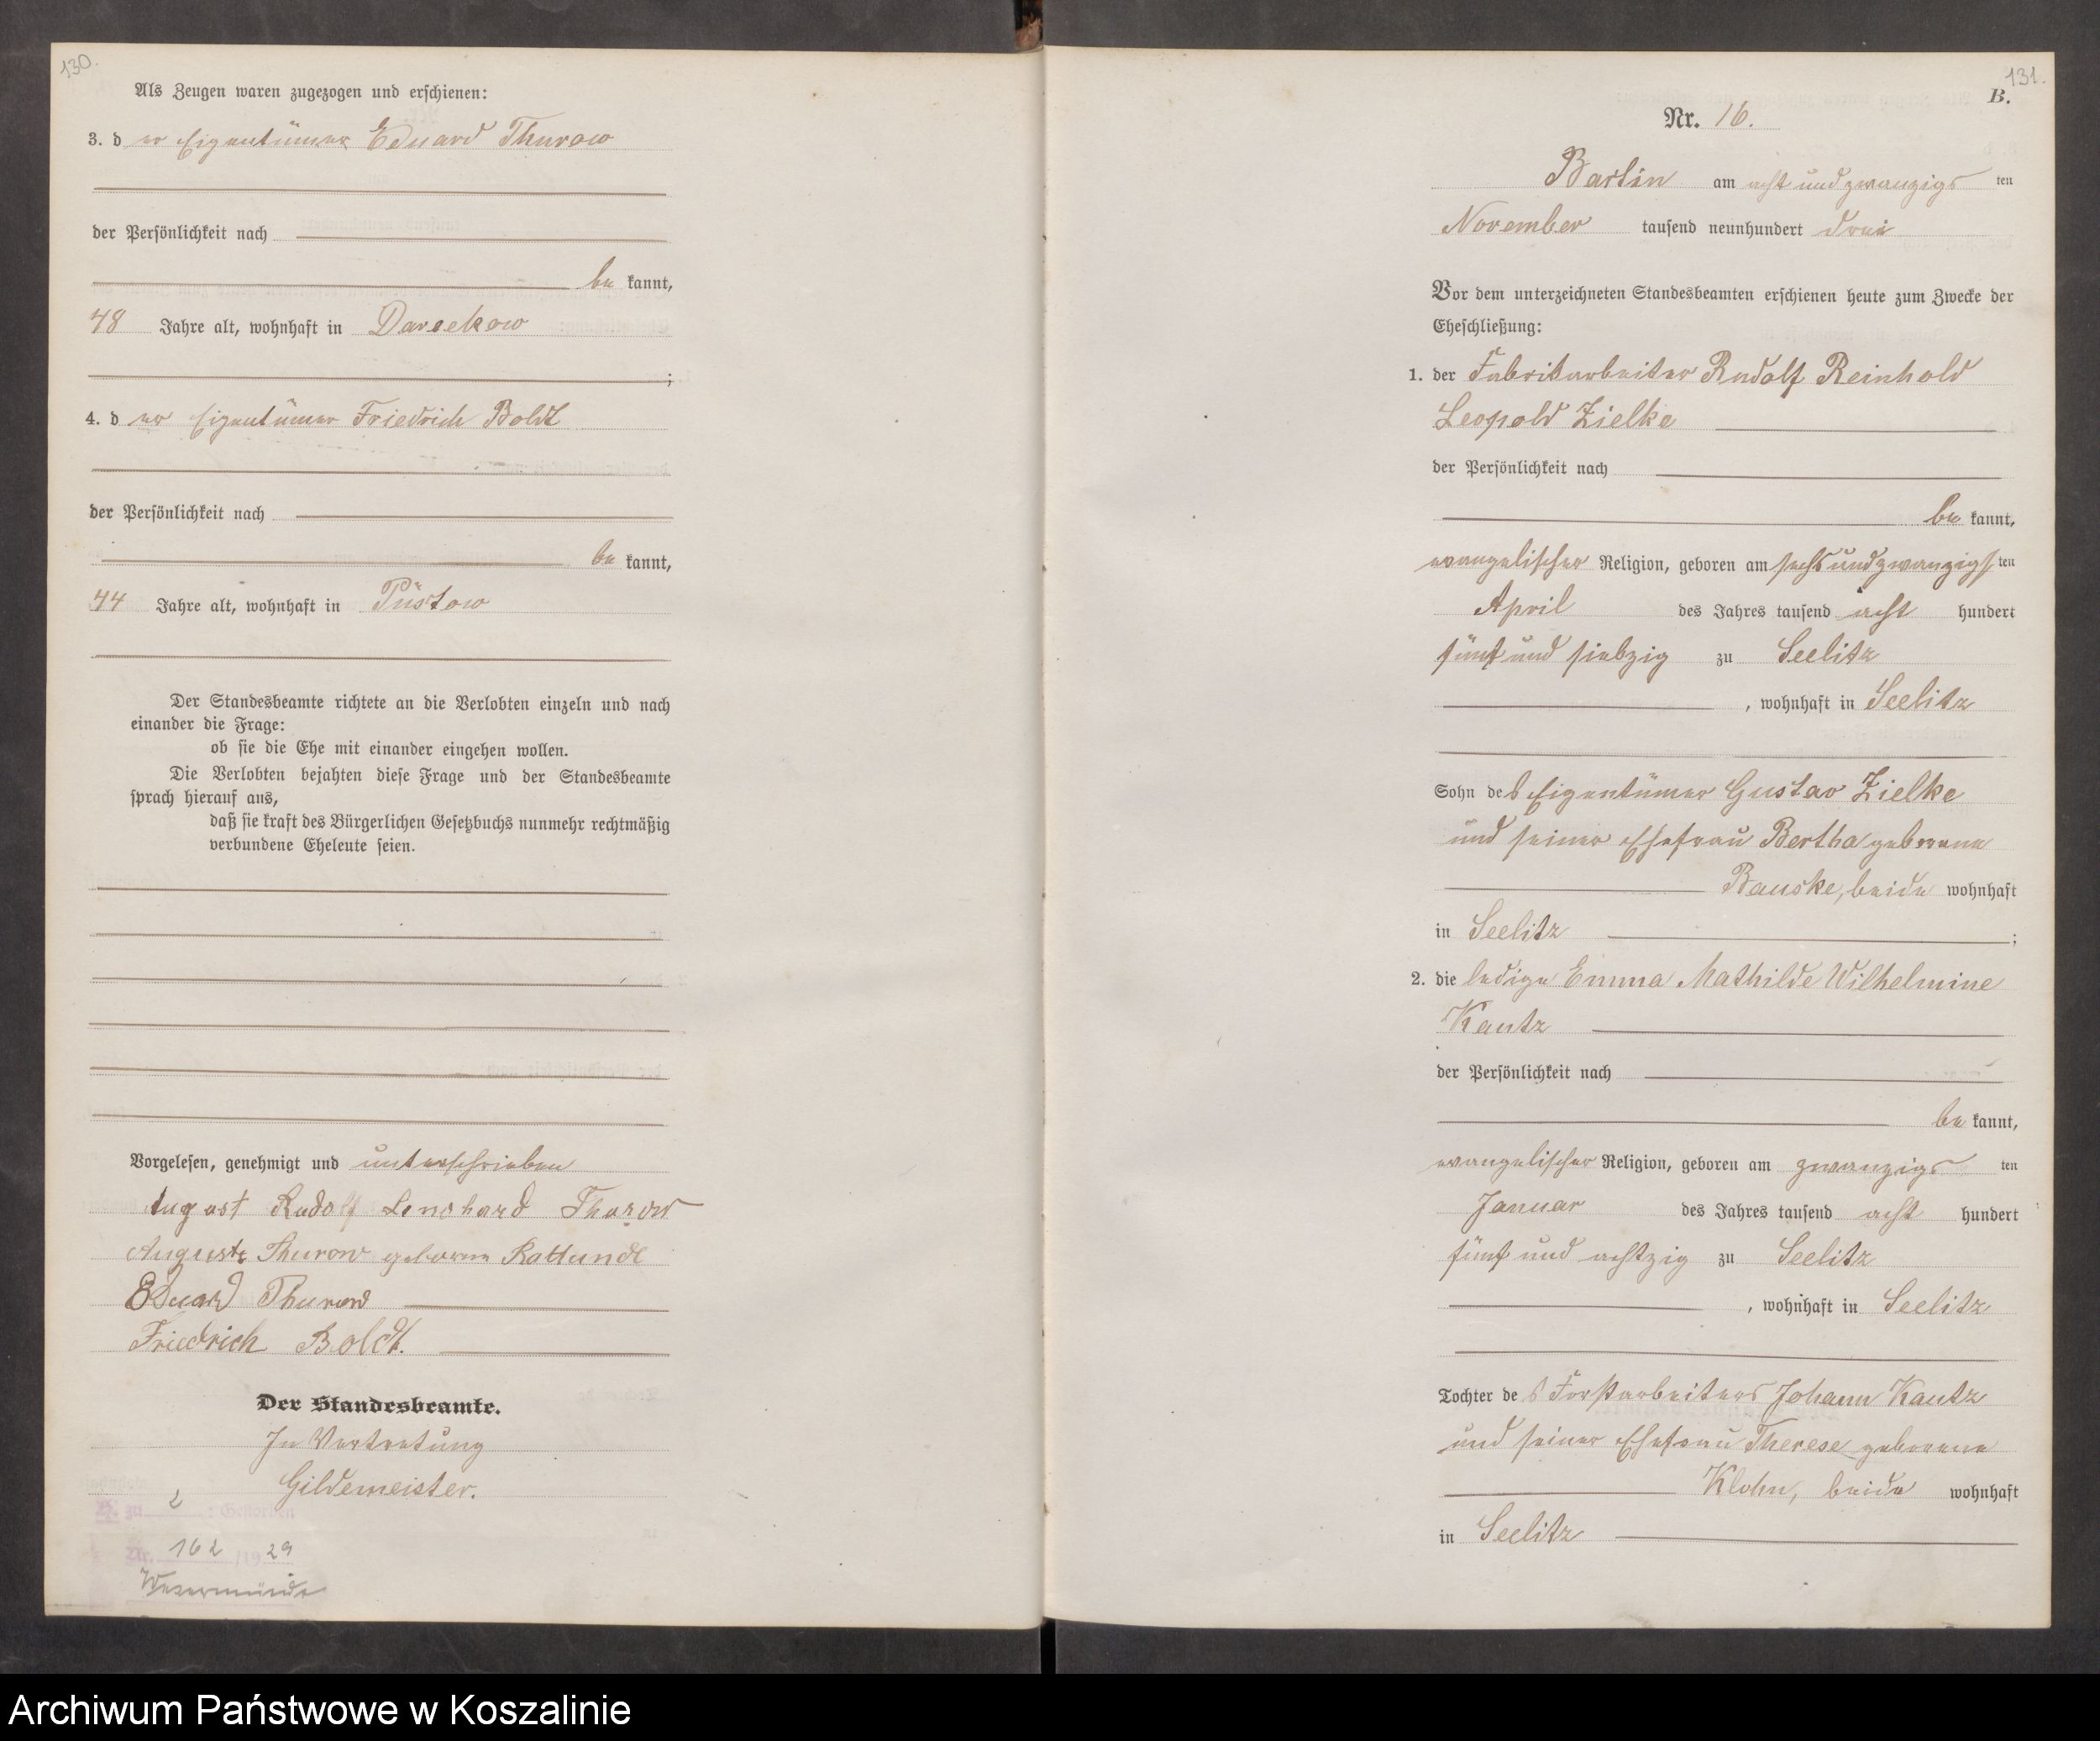 130.
Als Zeugen waren zugezogen und erschienen:
3. d er Eigentümer Eduard Thurow
der Persönlichkeit nach
be kannt,
48 Jahre alt, wohnhaft in Darsekow
;
4. d er Eigentümer Friedrich Boldt
der Persönlichkeit nach
be kannt,
44 Jahre alt, wohnhaft in Püstow
Der Standesbeamte richtete an die Verlobten einzeln und nach
einander die Frage:
ob sie die Ehe mit einander eingehen wollen.
Die Verlobten bejahten diese Frage und der Standesbeamte
sprach hierauf aus,
daß sie kraft des Bürgerlichen Gesetzbuchs nunmehr rechtmäßig
verbundene Eheleute seien.
Vorgelesen, genehmigt und unterschrieben
August Rudolf Leonhard Thurow
Auguste Thurow geborene Rattunde
Eduard Thurow
Friedrich Boldt.
Der Standesbeamte.
In Vertretung
Gildemeister.
zu 2 : Gestorben
Nr. 162 /19 29
Wesermünde
131.
B.
Nr. 16.
Bartin am acht und zwanzigs ten
November tausend neunhundert drei
Vor dem unterzeichneten Standesbeamten erschienen heute zum Zwecke der
Eheschließung:
1. der Fabrikarbeiter Rudolf Reinhold
Leopold Zielke
der Persönlichkeit nach
be kannt,
evangelischer Religion, geboren am sechs und zwanzigs ten
April des Jahres tausend acht hundert
fünf und siebzig zu Seelitz
, wohnhaft in Seelitz
Sohn des Eigentümer Gustav Zielke
und seiner Ehefrau Bertha geborene
Bauske, beide wohnhaft
in Seelitz ;
2. die ledige Emma Mathilde Wilhelmine
Kautz
der Persönlichkeit nach
be kannt,
evangelischer Religion, geboren am zwanzigs ten
Januar des Jahres tausend acht hundert
fünf und achtzig zu Seelitz
, wohnhaft in Seelitz
Tochter des Forstarbeiters Johann Kautz
und seiner Ehefrau Therese geborene
Klohn, beide wohnhaft
in Seelitz
Archiwum Państwowe w Koszalinie